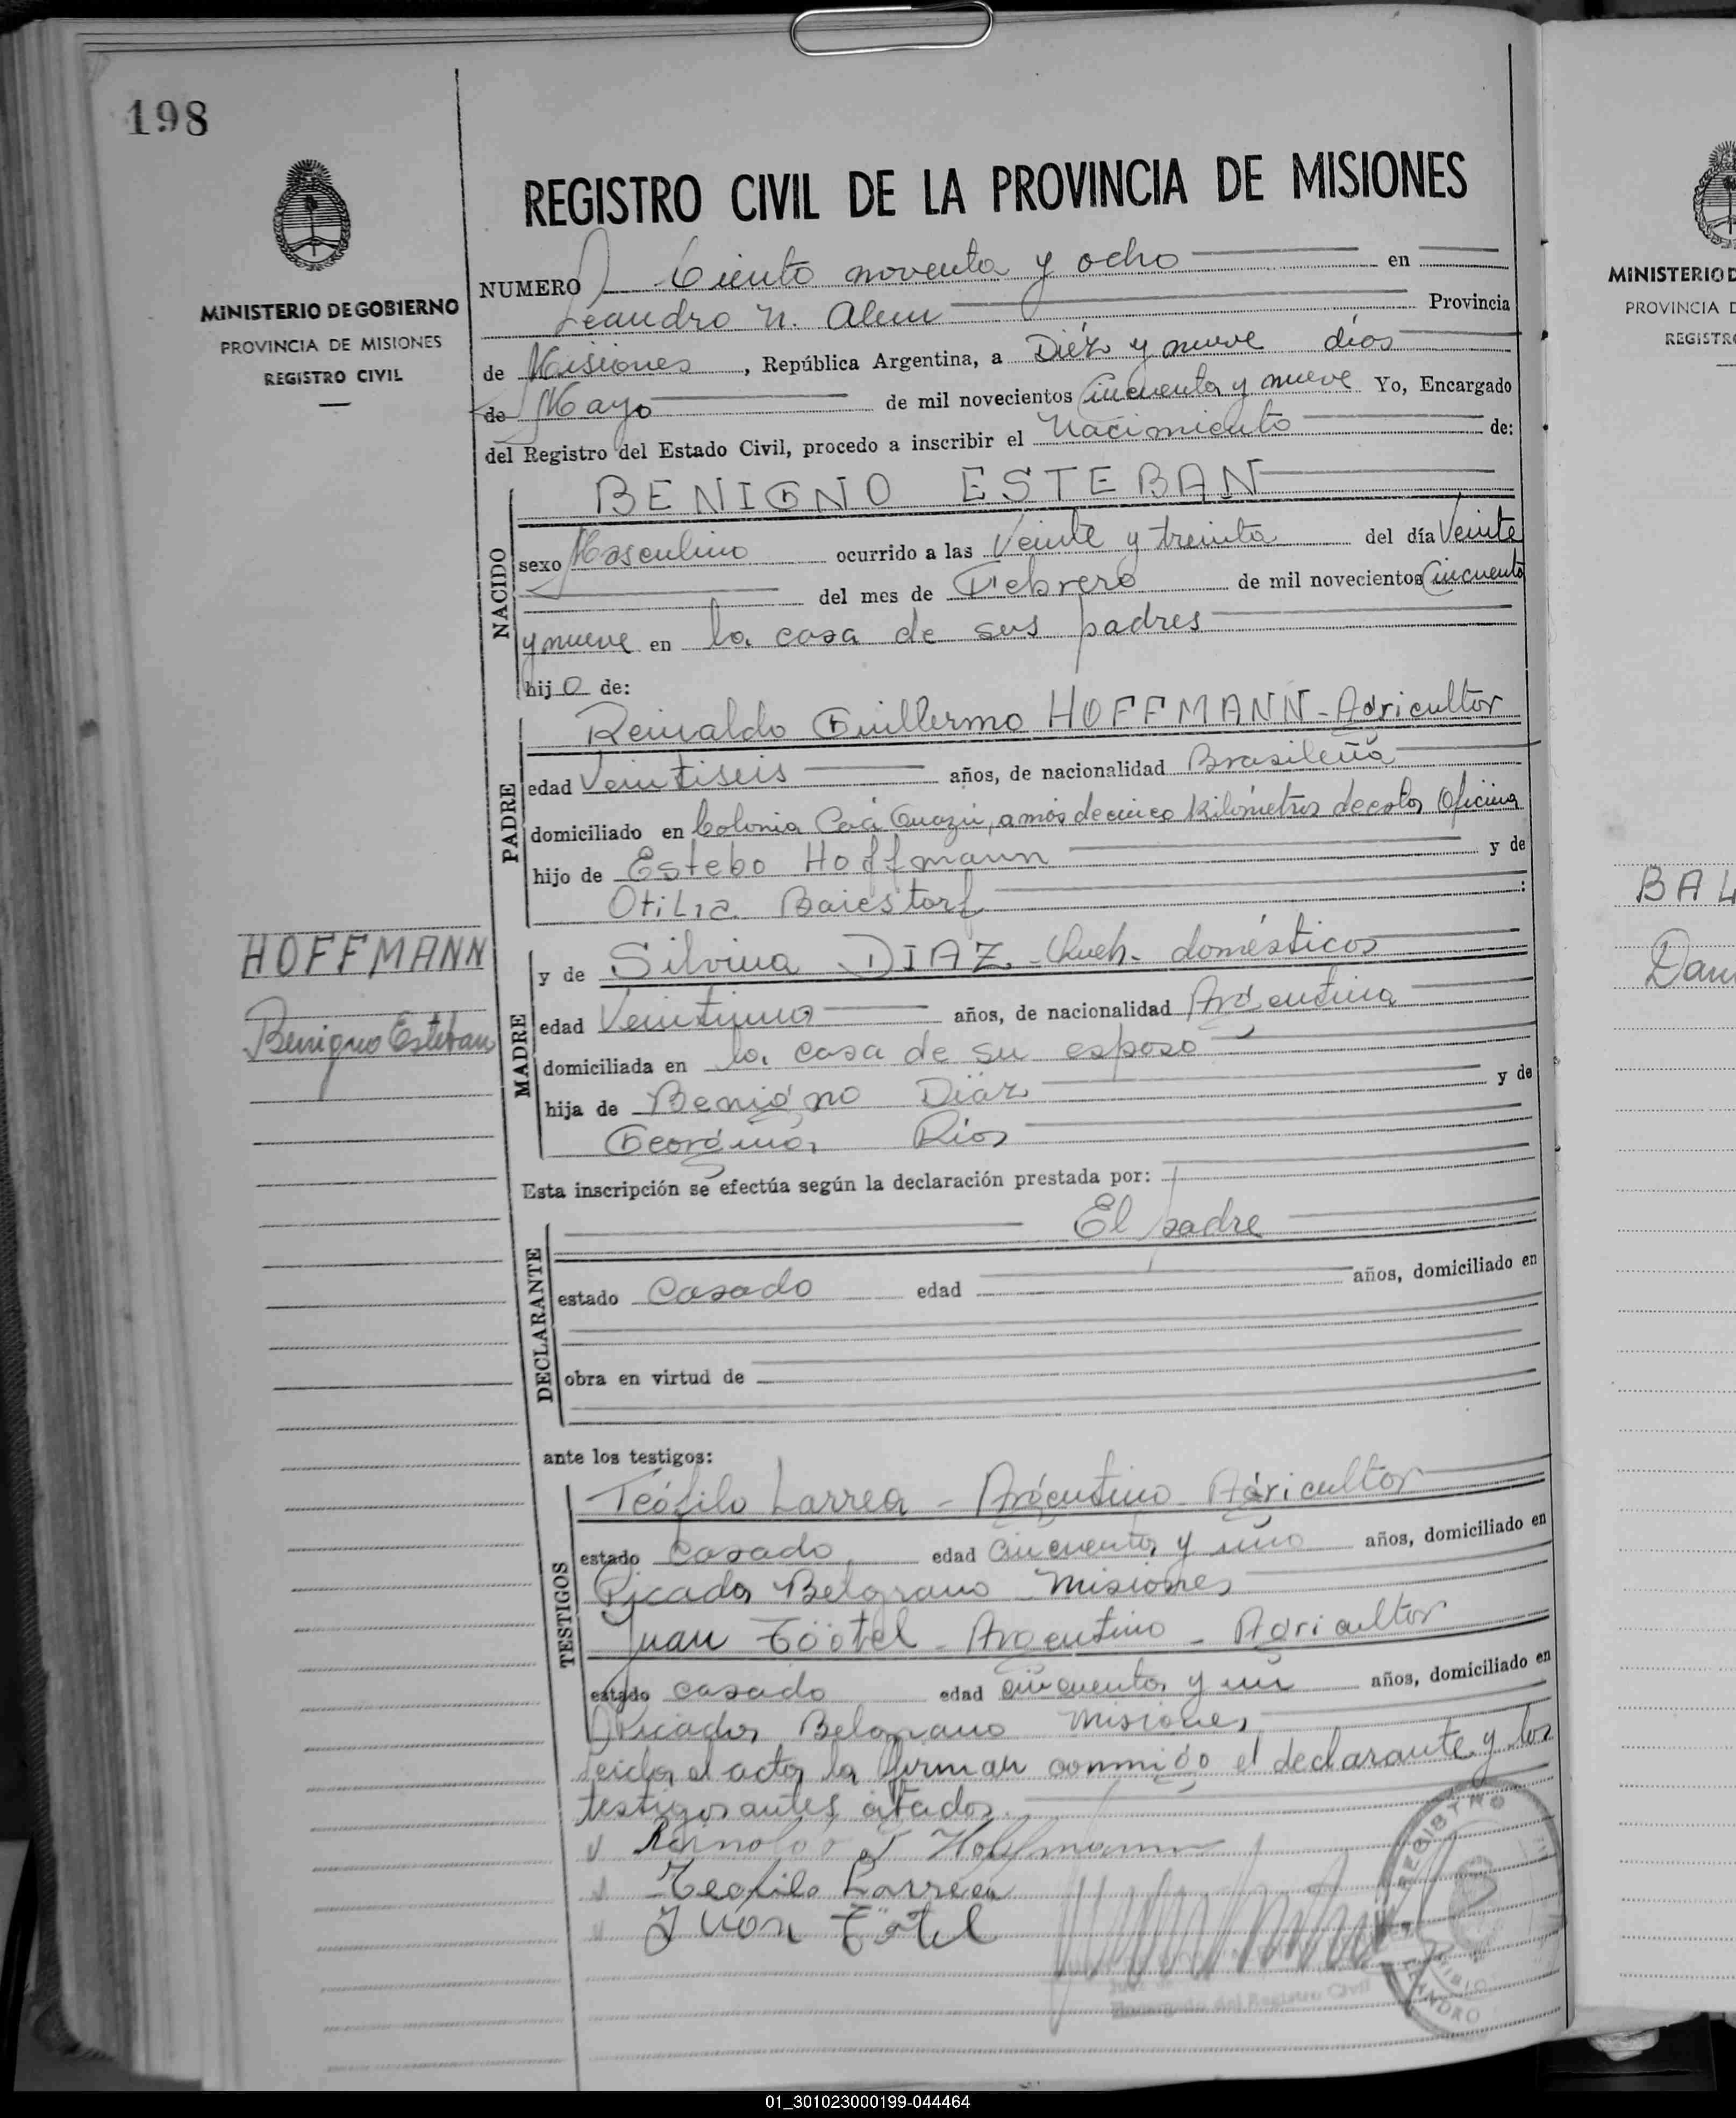 198
MINISTERIO DE GOBIERNO
PROVINCIA DE MISIONES
REGISTRO CIVIL
REGISTRO CIVIL DE LA PROVINCIA DE MISIONES
NUMERO Ciento noventa y ocho en
Leandro N. Alem Provincia
de Misiones, República Argentina, a Diéz y nueve días
de Mayo de mil novecientos Cincuenta y nueve Yo, Encargado
del Registro del Estado Civil, procedo a inscribir el Nacimiento de:
NACIDO
BENIGNO ESTEBAN
sexo Masculino ocurrido a las Veinte y treinta del día Veinte
del mes de Febrero de mil novecientos Cincuenta
y nueve en la casa de sus padres
hijo de:
PADRE
Reinaldo Guillermo HOFFMANN - Agricultor
edad Veintiseis años, de nacionalidad Brasileña
domiciliado en Colonia Caá Guazú, a más de cinco Kilómetros de esta Oficina
hijo de Estebo Hoffmann y de
Otilia Baiestorf :
HOFFMANN
Benigno Esteban
MADRE
y de Silvina DIAZ - Queh. domésticos
edad Veintiuno años, de nacionalidad Argentina
domiciliada en la casa de su esposo
hija de Benigno Diáz y de
Georgina Ríos
Esta inscripción se efectúa según la declaración prestada por:
DECLARANTE
El padre
estado Casado edad años, domiciliado en
obra en virtud de
ante los testigos:
TESTIGOS
Teófilo Larrea - Argentino - Agricultor
estado Casado edad Cincuenta y uno años, domiciliado en
Picada Belgrano Misiones
Juan Töotel - Argentino - Agricultor
estado casado edad cincuenta y un años, domiciliado en
Picada Belgrano Misiones
Leida el acta la firman conmigo el declarante y los
testigos antes citados.
Hoffmann
Teofilo Larrea
Juan Tötel
Encargado del Registro Civil
REGISTRO
LEANDRO
MINISTERIO D
PROVINCIA D
REGISTR
BAL
Dan
01_301023000199-044464